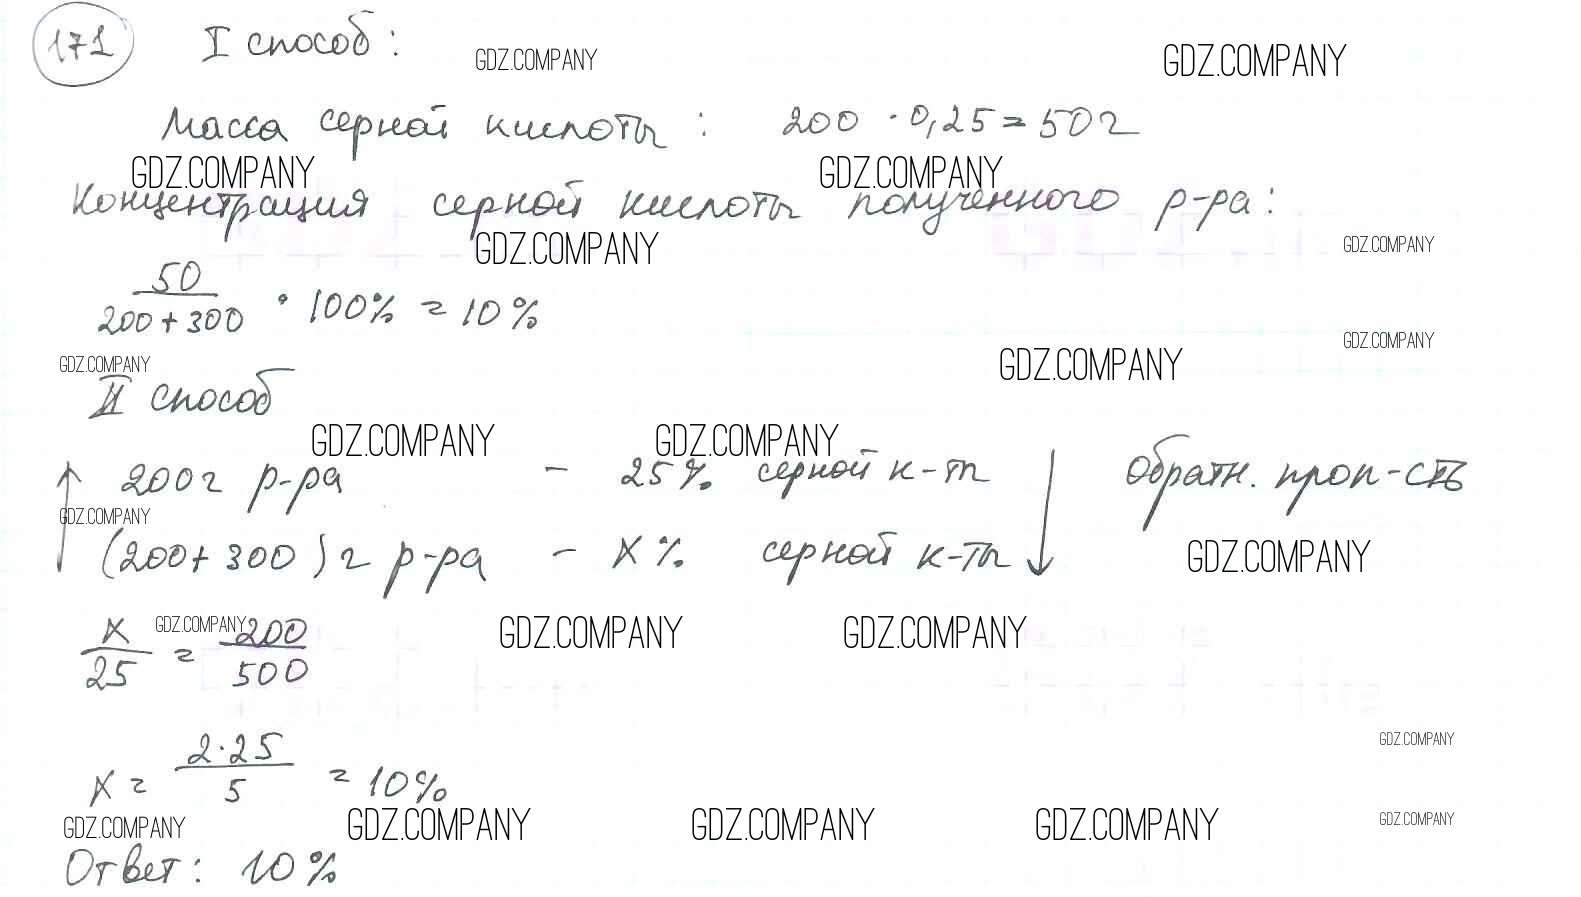 171 I способ:
GDZ.COMPANY GDZ.COMPANY
Масса серной кислоты: 200 · 0,25 = 50 г
GDZ.COMPANY GDZ.COMPANY
Концентрация серной кислоты полученного р-ра:
GDZ.COMPANY GDZ.COMPANY
50 / (200 + 300) · 100% = 10%
GDZ.COMPANY
GDZ.COMPANY GDZ.COMPANY
II способ
GDZ.COMPANY GDZ.COMPANY
↑ 200 г р-ра – 25% серной к-ты ↓ обратн. проп-сть
GDZ.COMPANY
(200 + 300) г р-ра – х% серной к-ты
GDZ.COMPANY
GDZ.COMPANY GDZ.COMPANY GDZ.COMPANY
х/25 = 200/500
GDZ.COMPANY
х = 2·25/5 = 10%
GDZ.COMPANY GDZ.COMPANY GDZ.COMPANY GDZ.COMPANY GDZ.COMPANY
Ответ: 10%